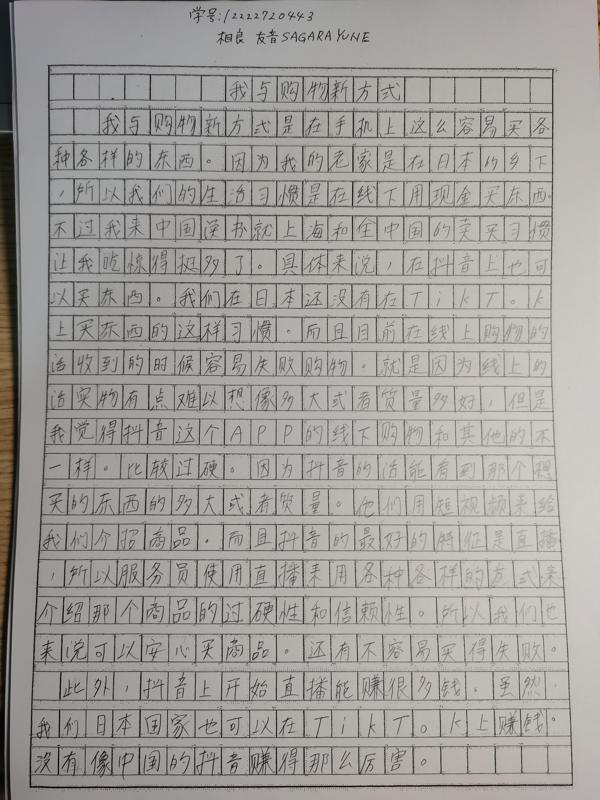 学号:12222720443
相良 友音 SAGARA YUNE
我与购物新方式
我与购物新方式是在手机上这么容易买各
种各样的东西。因为我的老家是在日本的乡下
,所以我们的生活习惯是在线下用现金买东西。
不过我来中国没办就上海和全中国的卖买习惯
让我吃惊得挺多了。具体来说,在抖音上也可
以买东西。我们在日本还没有在TikT。k
上买东西的这样习惯。而且目前在线上购物的
活收到的时候容易失败购物。就是因为线上的
活实物有点难以想像多大或者质量多好,但是
我觉得抖音这个APP的线下购物和其他的不
一样。比较过硬。因为抖音的活能看到那个想
买的东西的多大或者质量。他们用短视频来给
我们介招商品。而且抖音的最好的特征是直播
,所以服务员使用直播来用各种各样的方式来
介绍那个商品的过硬性和信赖性。所以我们也
来说可以安心买商品。还有不容易买得失败。
此外,抖音上开始直播能赚很多钱。虽然
我们日本国家也可以在TikT。k上赚钱。
没有像中国的抖音赚得那么厉害。